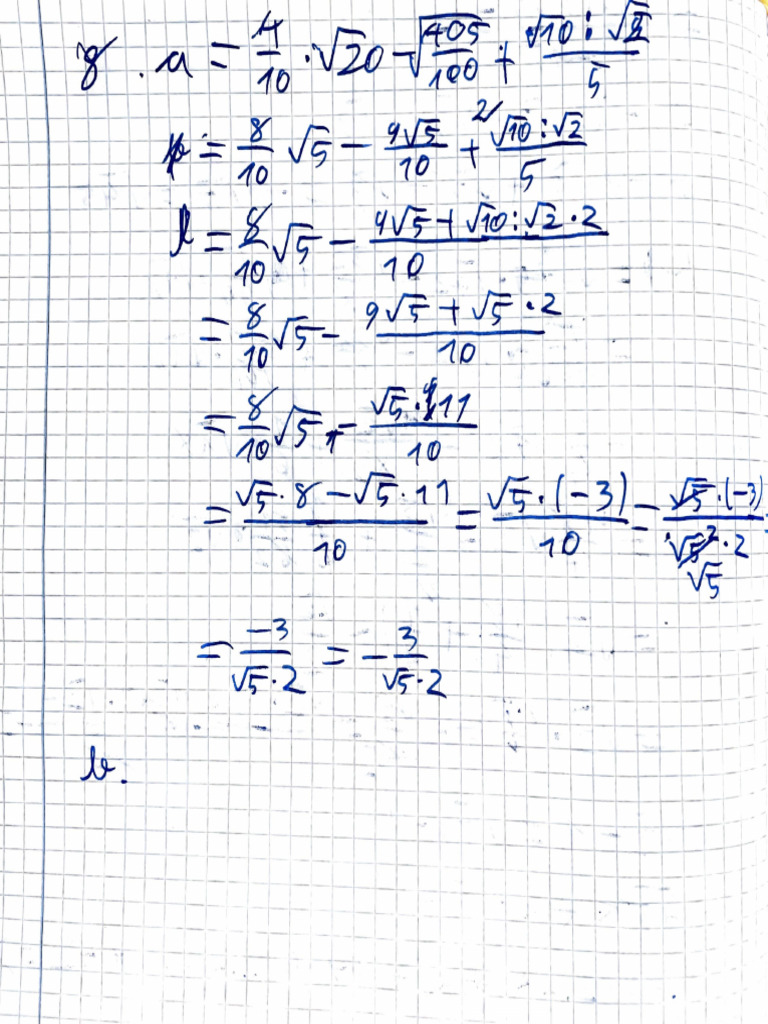 8. a = 4/10 · √20 - √(405/100) + (√10 : √2)/5
= 8/10 √5 - 9√5/10 + ²⁄ (√10 : √2)/5
= 8/10 √5 - (9√5 + √10 : √2 · 2)/10
= 8/10 √5 - (9√5 + √5 · 2)/10
= 8/10 √5 - (√5 · 11)/10
= (√5 · 8 - √5 · 11)/10 = (√5 · (-3))/10 = (√5 · (-3))/(√5² · 2) √5
= -3/(√5 · 2) = - 3/(√5 · 2)
b.